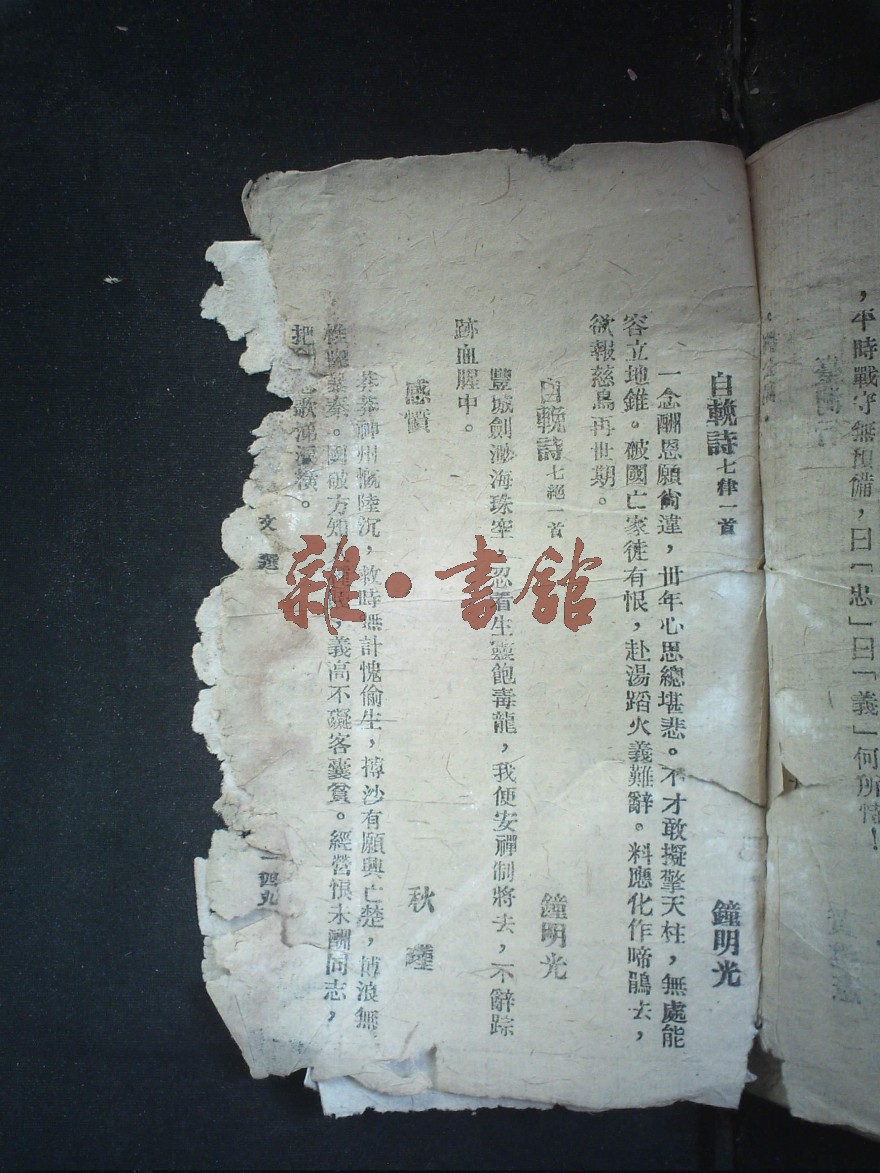 ，平時戰守無預備，曰「忠」曰「義」何所恃！
自輓詩七律一首　鐘明光
一念酬恩願尚違，卅年心思總堪悲。不才敢擬擎天柱，無處能
容立地錐。破國亡家徒有恨，赴湯蹈火義難辭。料應化作啼鵑去，
欲報慈烏再世期。
自輓詩七絕一首　鐘明光
豐城劍渺海珠空，忍看生靈飽毒龍，我便安禪制將去，不辭踪
跡血腥中。
感憤　秋瑾
莽莽神州慨陸沉，救時無計愧偷生，摶沙有願興亡楚，博浪無
椎擊暴秦。國破方知，義高不礙客囊貧。經營恨未酬同志，
把歌涕淚橫。
文選
一四九
雜·書館